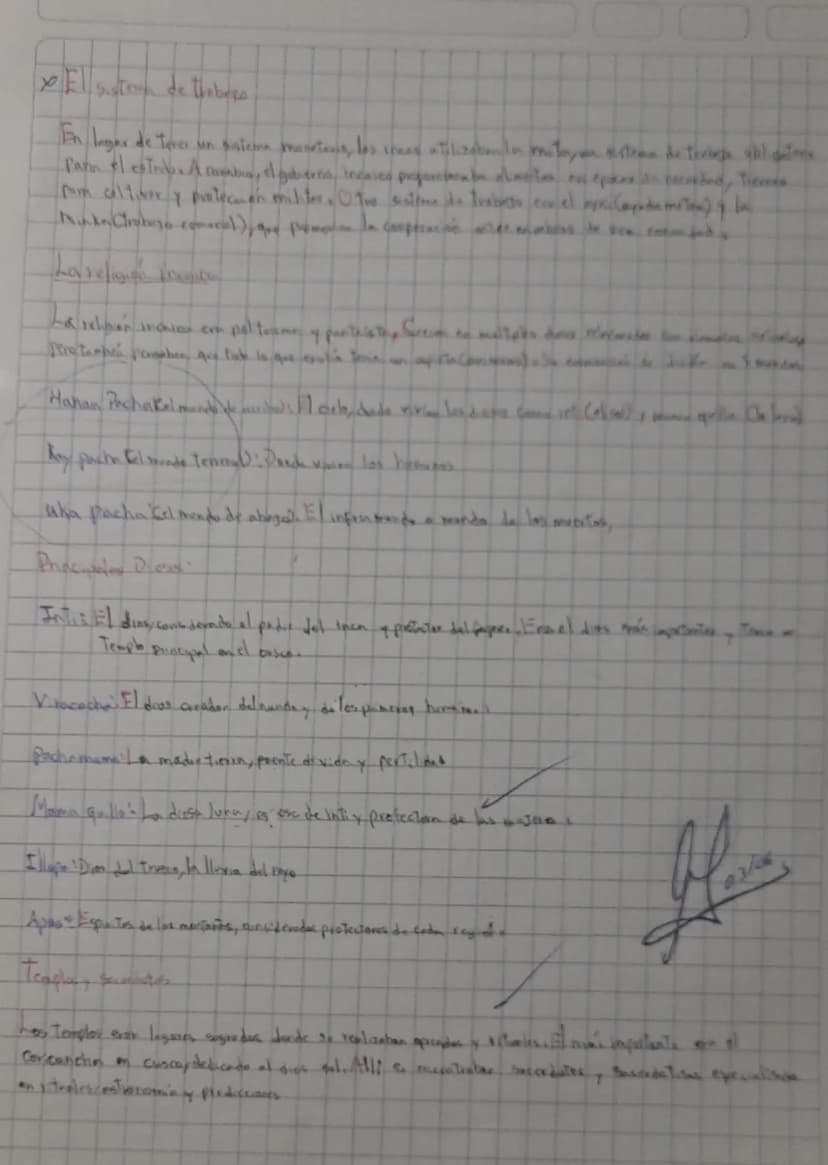 El sistema de trabajo
En lugar de tener un sistema monetario, los incas utilizaban la mita, un sistema de trabajo obligatorio
para el estado. A cambio, el gobierno incaico proporcionaba alimentos en epocas de necesidad, tierras
para cultivar y protección militar. Otro sistema de trabajo era el ayni (ayuda mutua) y la
Minka (trabajo comunal), que la cooperación entre miembros de una comunidad.
La religión incaica
La religión incaica era politeista y panteista, Creian en multiples dioses
pero también pensaban que todo lo que existía tenia un
Hanan Pacha (el mundo de arriba): El cielo, donde vivian los dioses como inti (el sol) y mama quilla (la luna)
Kay pacha (el mundo terrenal): Donde vivian los humanos
uku pacha (el mundo de abajo): El inframundo o mundo de los muertos.
Principales Dioses:
Inti: El dios, considerado el padre del inca y protector del imperio. Era el dios más importante y tenia su
Templo principal en el cusco.
Viracocha: El dios creador del mundo y de los primeros humanos
Pachamama: La madre tierra, fuente de vida y fertilidad
Mama quilla: La diosa luna, esposa de inti y protectora de las mujeres.
Illapa: Dios del trueno, la lluvia del rayo
Apus: Espiritus de las montañas, considerados protectores de cada región.
Templos y sacerdotes
Los templos eran lugares sagrados donde se realizaban ofrendas y rituales. El más importante era el
Coricancha en cusco, dedicado al dios sol. Allí se encontraban sacerdotes y sacerdotisas
en rituales, astronomia y predicciones